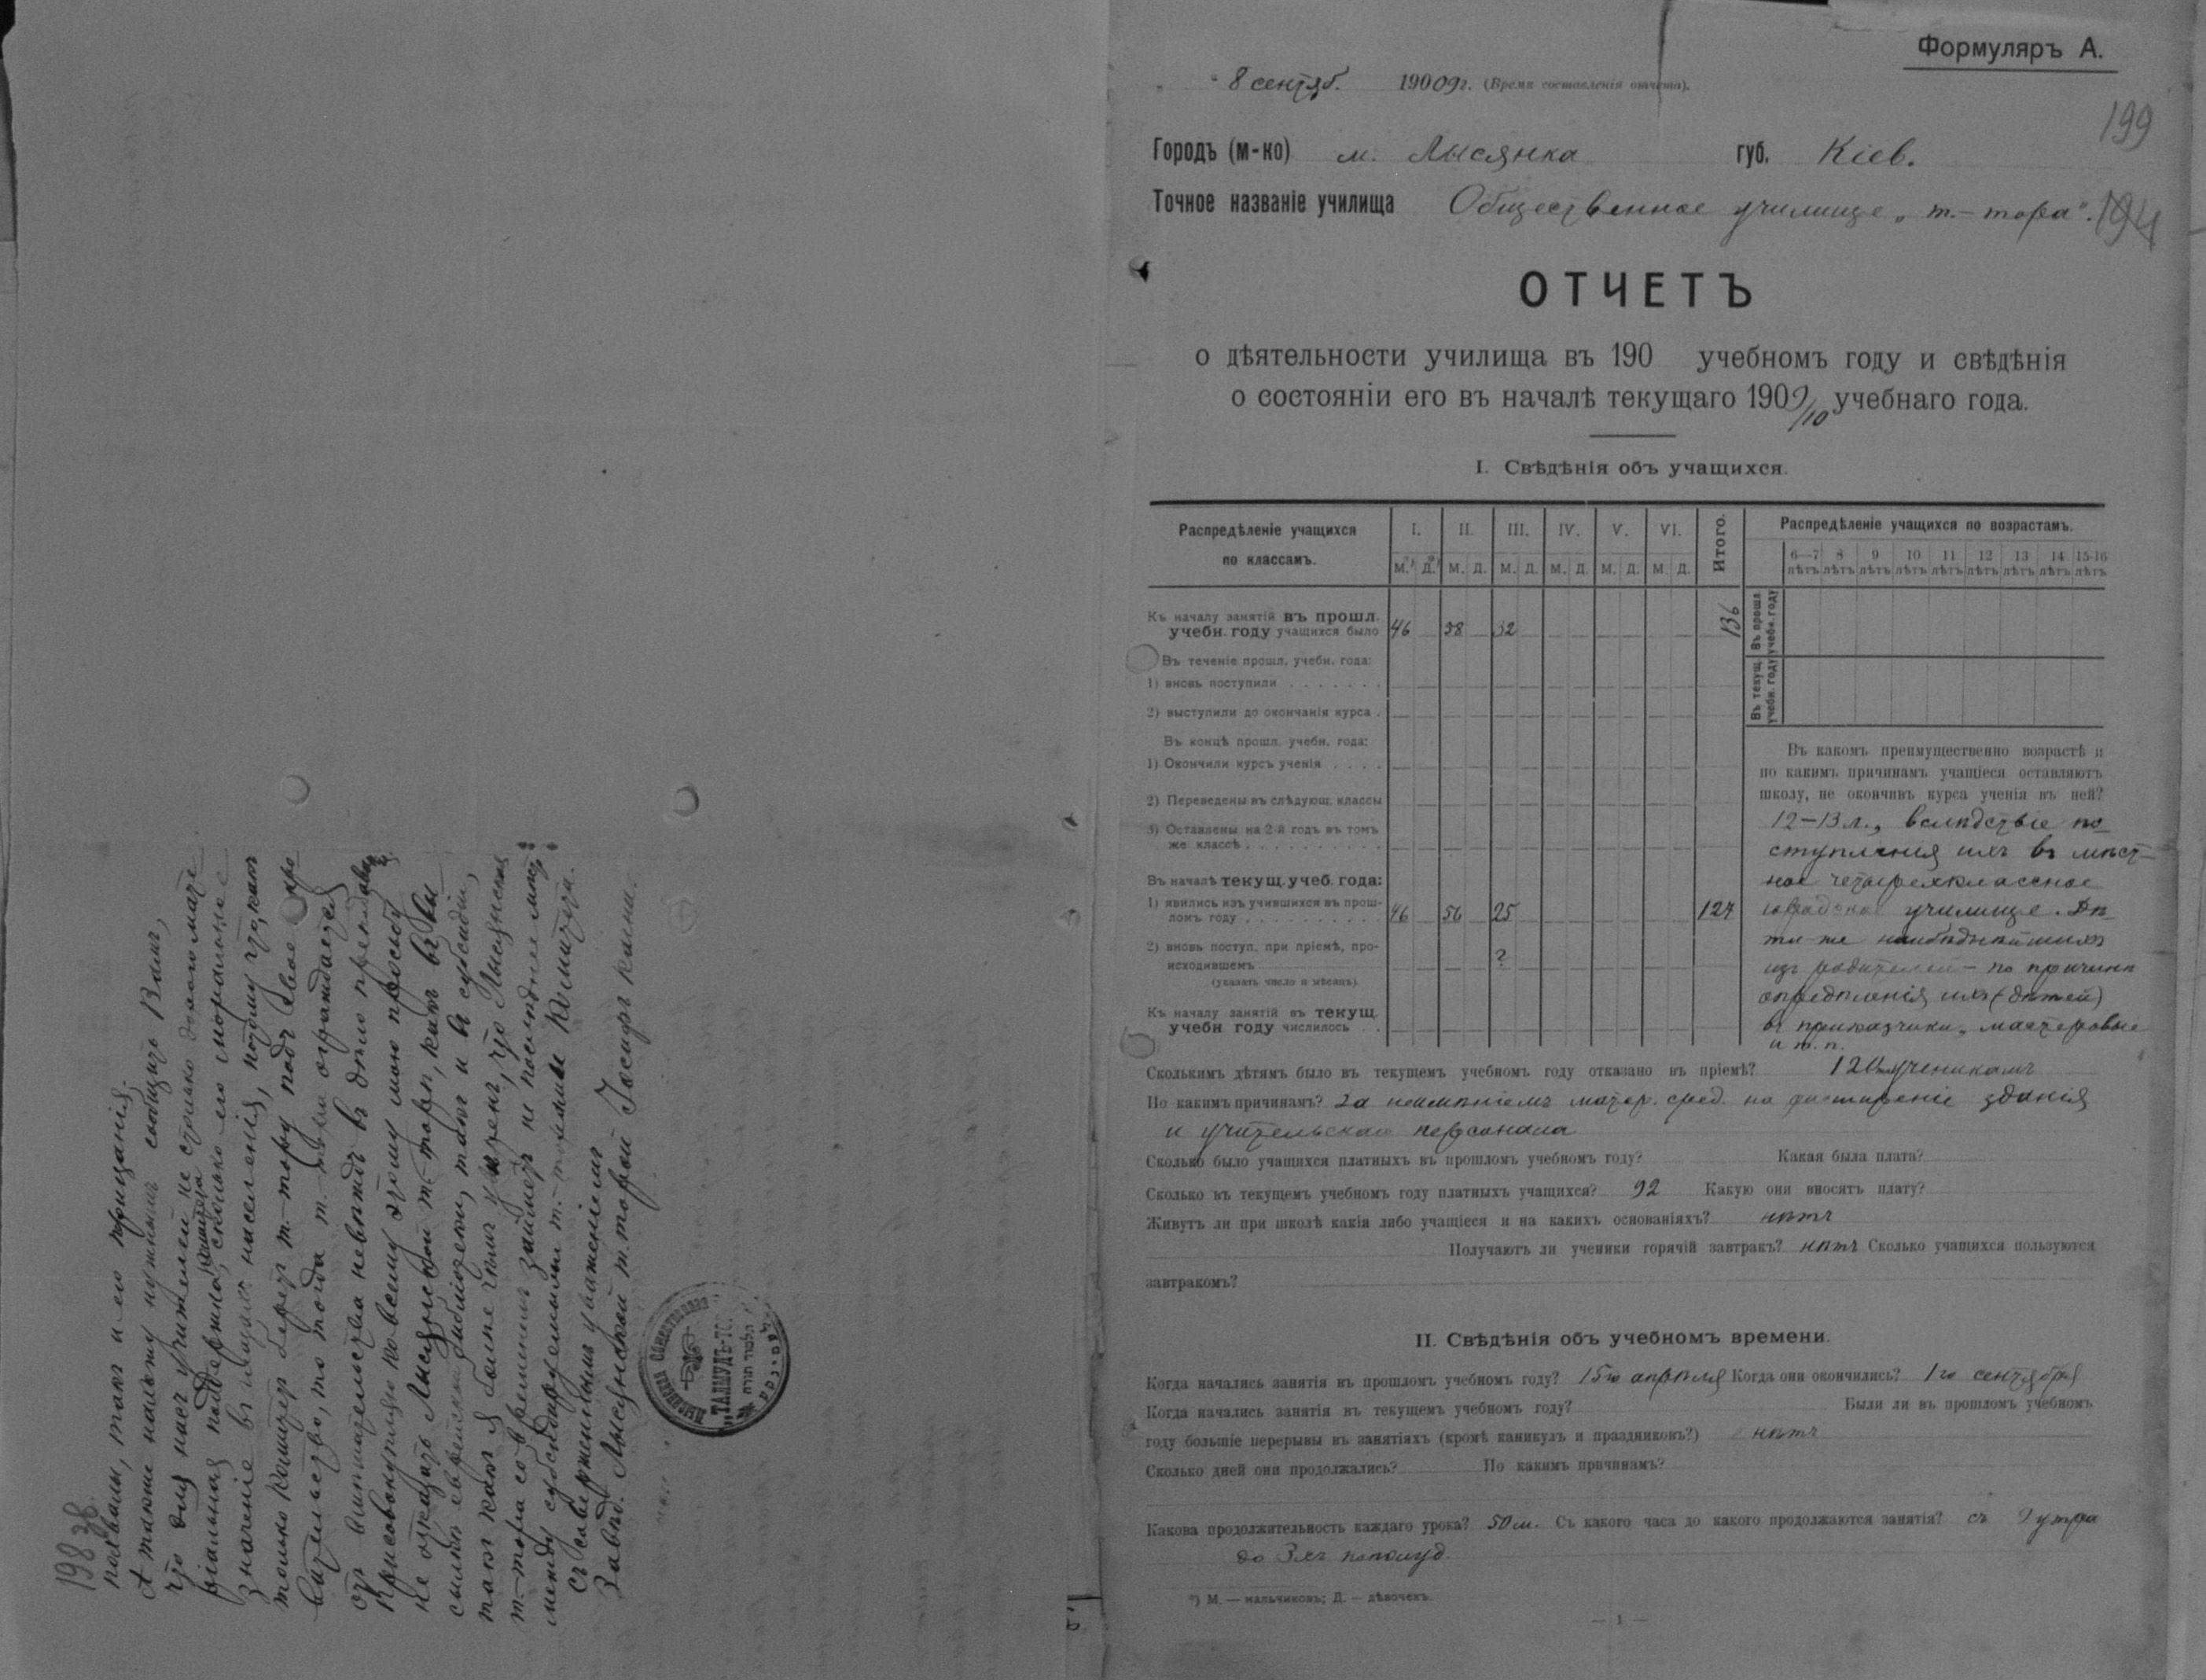 198 об.
похвалы, такъ и его порицанія.
А также нахожу нужнымъ сообщить Вамъ,
что для насъ учителей не столько дорого мате-
ріальная поддержка Комитета, сколько его моральное
значеніе въ глазахъ населенія, потому что, какъ
только Комитетъ беретъ т.-тору подъ свое покро-
вительство, то тогда т.-тора ограждается
отъ вмѣшательства невѣждъ въ дѣло преподаванія
Присовокупляю ко всему этому мою просьбу
не отказать Лысянской т.-торѣ, какъ въ вы-
сылкѣ еврейской библіотеки, такъ и въ субсидіи,
такъ какъ я болѣе чѣмъ увѣренъ, что Лысянская
т.-тора современемъ займетъ не послѣднее мѣсто
между субсидируемыми т.-торами Комитета.
Съ совершеннымъ уваженіемъ
Завѣд. Лысянской т.-торой Іосифъ
ТАЛМУДЪ-ТОРА
תלמוד תורה
Формуляръ А.
8 сентяб. 190 09 г. (Время составленія отчета).
199
Городъ (м-ко) м. Лысянка губ. Кіев.
Точное названіе училища Общественное училище „т.-тора".
194
ОТЧЕТЪ
о дѣятельности училища въ 190 учебномъ году и свѣдѣнія
о состояніи его въ началѣ текущаго 1909/10 учебнаго года.
I. Свѣдѣнія объ учащихся.
Распредѣленіе учащихся по классамъ.
I. II. III. IV. V. VI. Итого.
М.*) Д.*) М. Д. М. Д. М. Д. М. Д. М. Д.
Распредѣленіе учащихся по возрастамъ.
6—7 лѣтъ 8 лѣтъ 9 лѣтъ 10 лѣтъ 11 лѣтъ 12 лѣтъ 13 лѣтъ 14 лѣтъ 15-16 лѣтъ
Въ прошл. учебн. году
Въ текущ. учебн. году
Къ началу занятій въ прошл.
учебн. году учащихся было 46 58 32 136
Въ теченіе прошл. учебн. года:
1) вновь поступили . . . . . . .
2) выступили до окончанія курса .
Въ концѣ прошл. учебн. года:
1) Окончили курсъ ученія . . . .
2) Переведены въ слѣдующ. классы
3) Оставлены на 2-й годъ въ томъ
же классѣ . . . . . . . . . .
Въ началѣ текущ. учеб. года:
1) явились изъ учившихся въ прош-
ломъ году . . . . . . . . . . 46 56 25 127
2) вновь поступ. при пріемѣ, про-
исходившемъ ?
(указать число и мѣсяцъ).
Къ началу занятій въ текущ.
учебн году числилось . .
Въ какомъ преимущественно возрастѣ и
по какимъ причинамъ учащіеся оставляютъ
школу, не окончивъ курса ученія въ ней?
12—13 л., вслѣдствіе по-
ступленія ихъ въ мѣст-
ное четырехклассное
городское училище. Дѣ-
ти же наибѣднѣйшихъ
изъ родителей — по причинѣ
опредѣленія ихъ (дѣтей)
въ приказчики, мастеровые
и т. п.
Сколькимъ дѣтямъ было въ текущемъ учебномъ году отказано въ пріемѣ? 120 ученикамъ
По какимъ причинамъ? За неимѣніемъ матер. сред. на расширеніе зданія
и учительскаго персонала
Сколько было учащихся платныхъ въ прошломъ учебномъ году? Какая была плата?
Сколько въ текущемъ учебномъ году платныхъ учащихся? 92 Какую они вносятъ плату?
Живутъ ли при школѣ какія либо учащіеся и на какихъ основаніяхъ? нѣтъ
Получаютъ ли ученики горячій завтракъ? нѣтъ Сколько учащихся пользуются
завтракомъ?
II. Свѣдѣнія объ учебномъ времени.
Когда начались занятія въ прошломъ учебномъ году? 15го апрѣля Когда они окончились? 1го сентября
Когда начались занятія въ текущемъ учебномъ году? Были ли въ прошломъ учебномъ
году большіе перерывы въ занятіяхъ (кромѣ каникулъ и праздниковъ?) нѣтъ
Сколько дней они продолжались? По какимъ причинамъ?
Какова продолжительность каждаго урока? 50 м. Съ какого часа до какого продолжаются занятія? съ 9 утра
до 3хъ пополуд.
*) М. — мальчиковъ; Д. — дѣвочекъ.
— 1 —